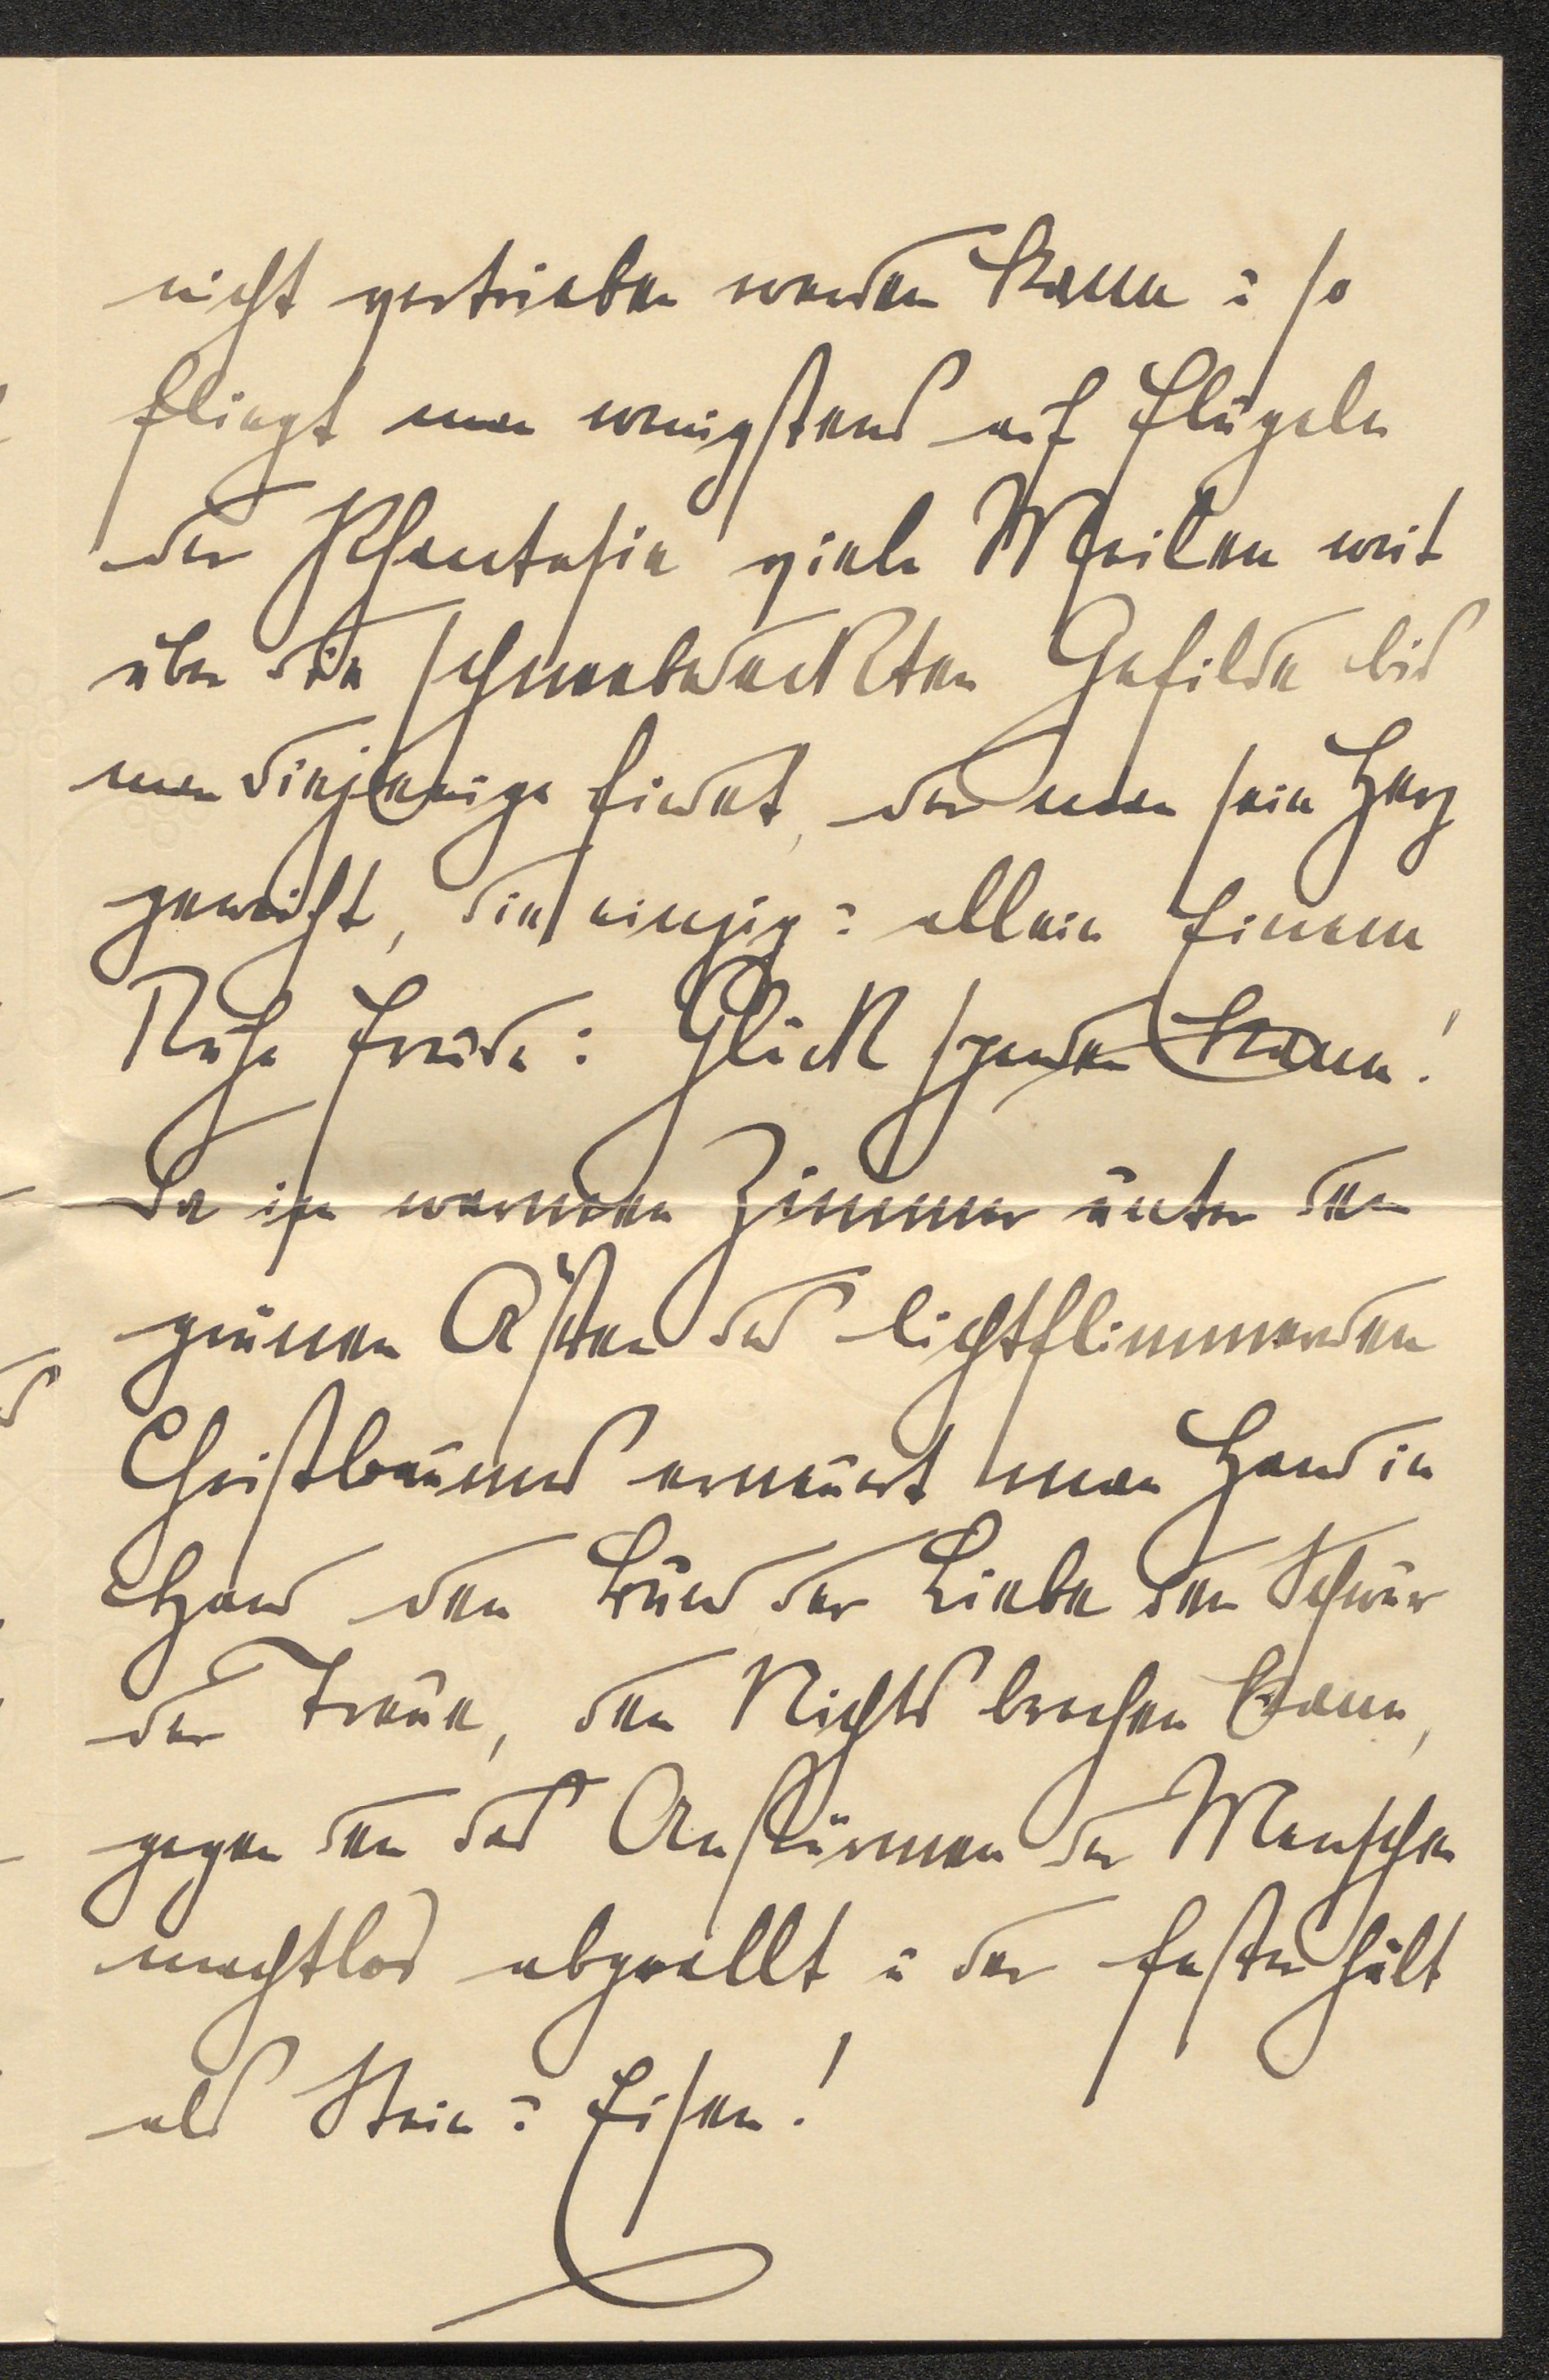 nicht vertrieben werden kann u so
fliegt man wenigstens auf Flügeln
der Phantasie viele Meilen weit
über die schneebedeckten Gefilde bis
man diejenige findet, der man sein Herz
geweiht, die einzig u allein Einem
Ruhe Freude u Glück spenden kann!
Da im warmen Zimmer unter den
grünen Ästen des lichtflimmernden
Christbaumes erneuert man Hand in
Hand den Bund der Liebe den Schwur
der Treue, den Nichts brechen kann,
gegen den das Anstürmen der Menschen
machtlos abprallt u der fester hält
als Stein u Eisen!